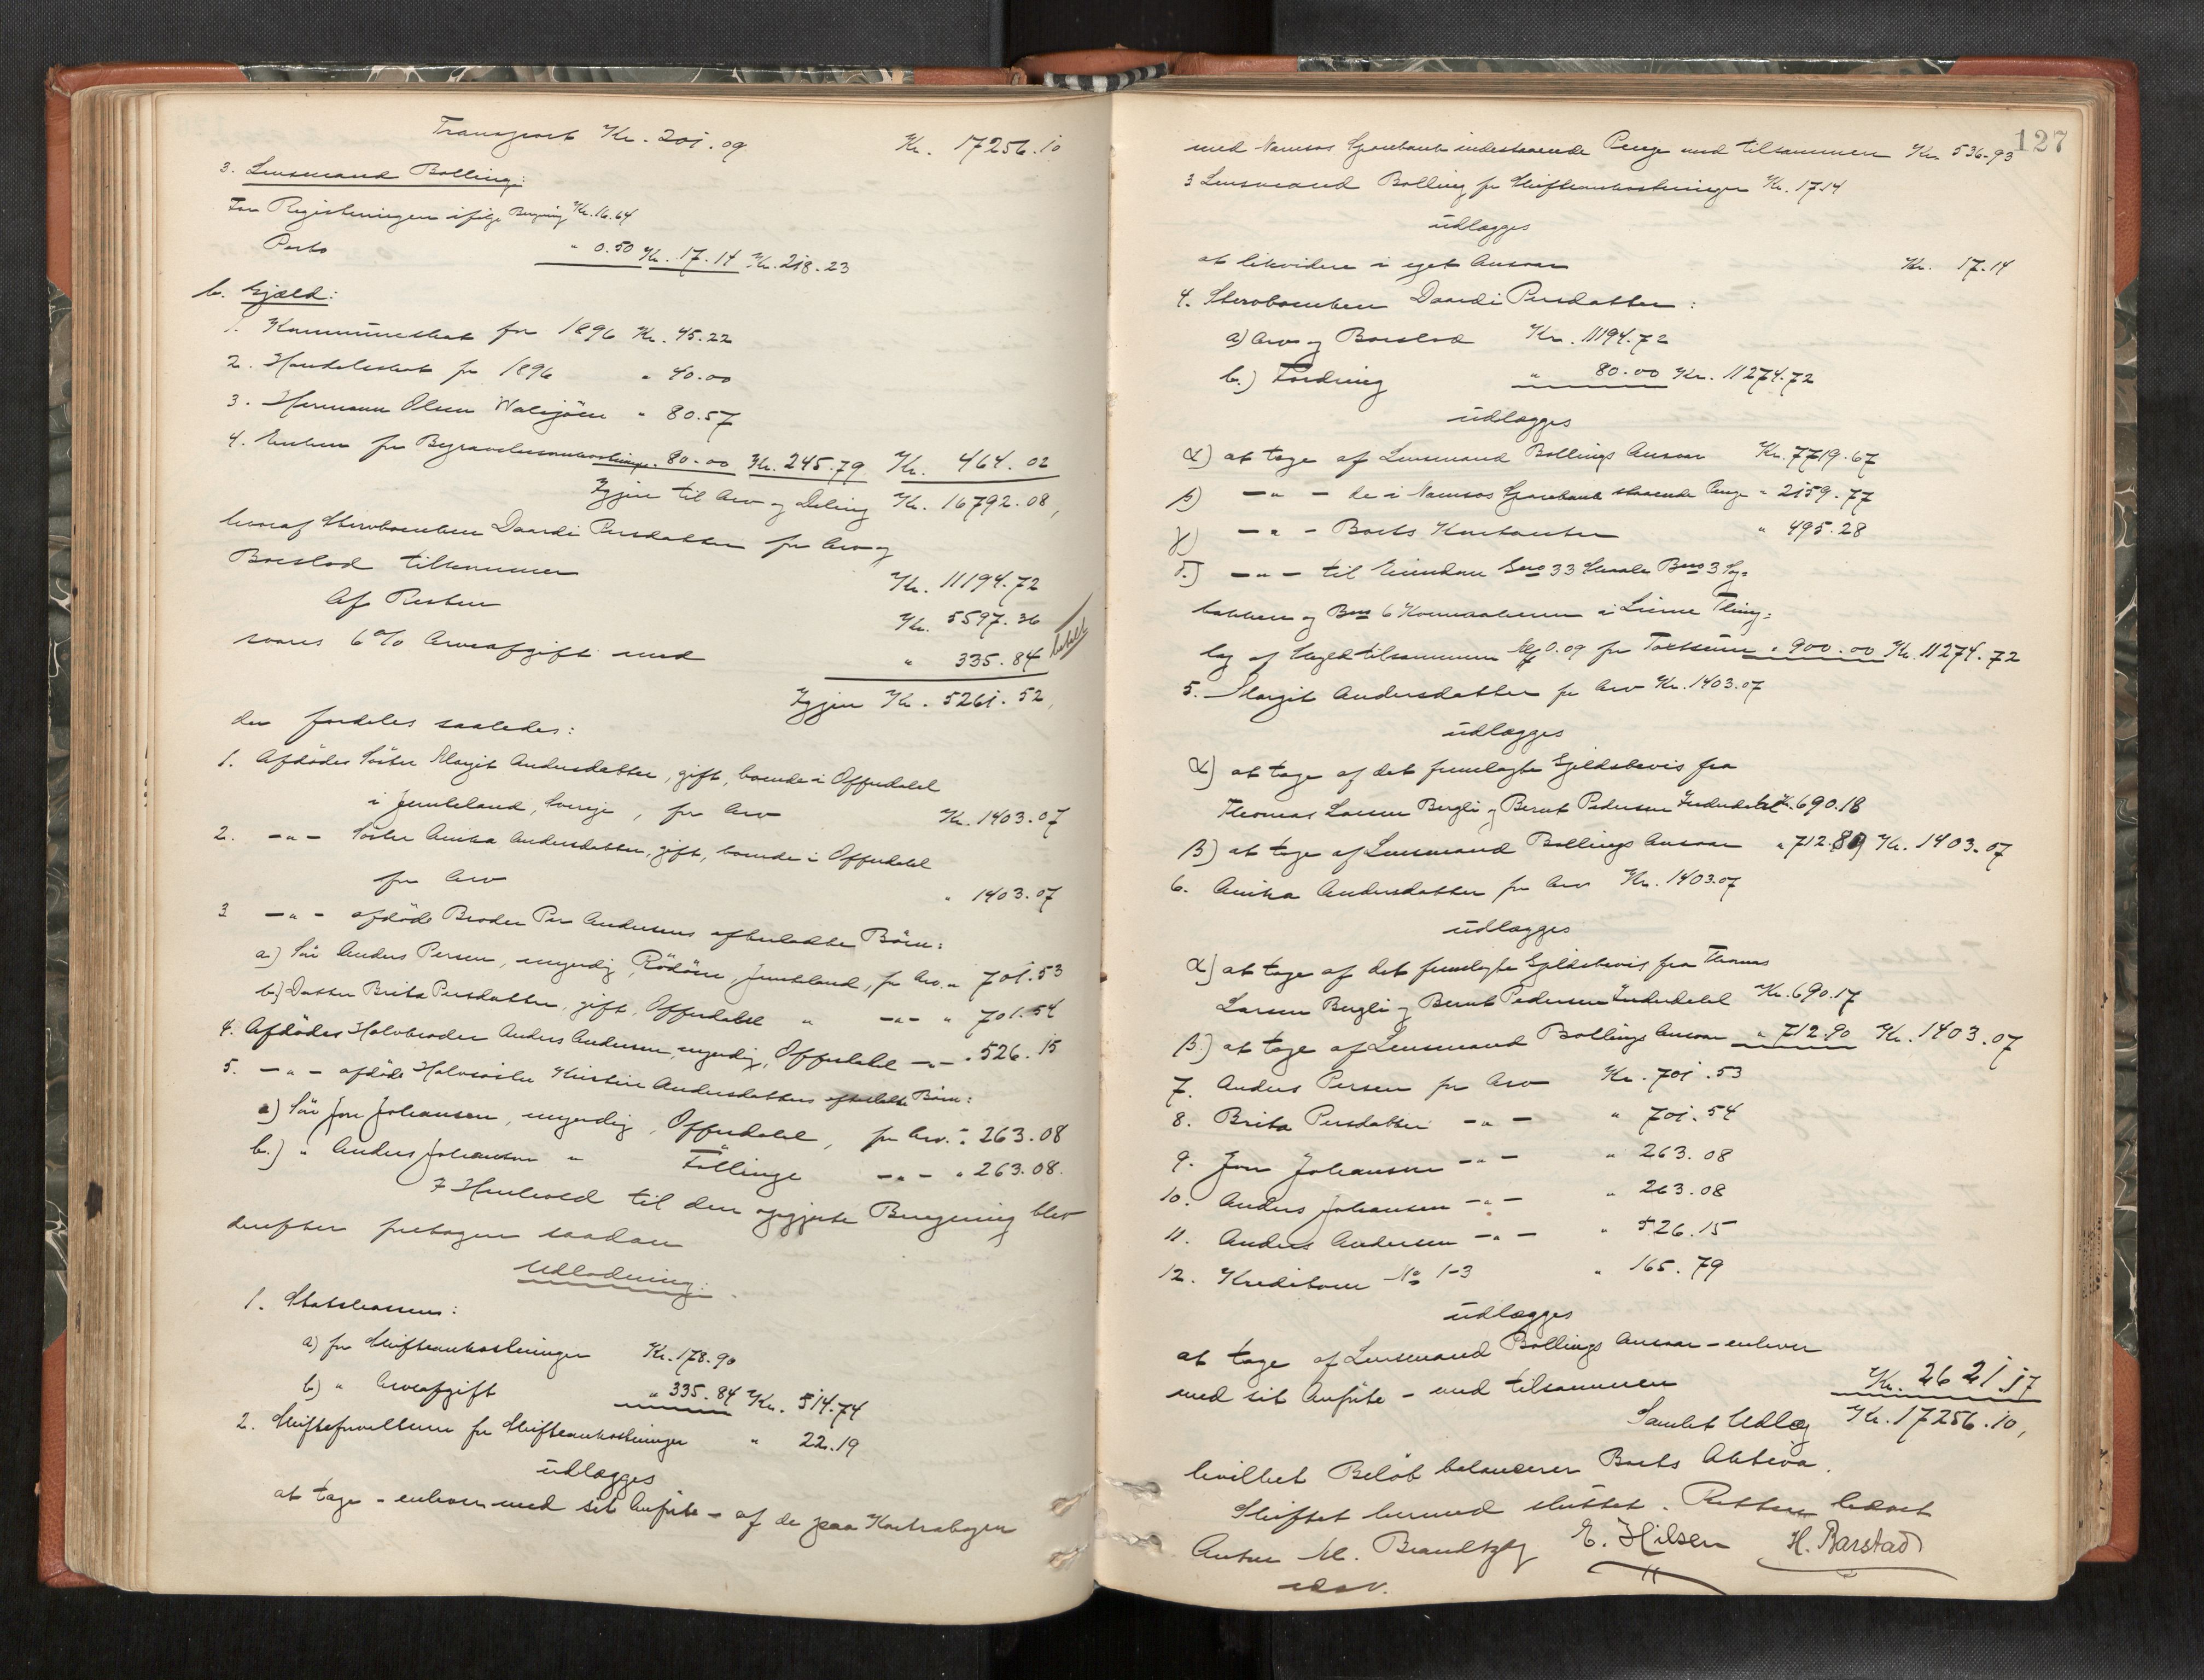 Transport Kr. 201.09 Kr. 17256.10
3. Lensmand Bolling:
For Registeringen ifølge Beregning Kr. 16.64
Porto " 0.50 Kr. 17.14 Kr. 218.23
b. Gjæld:
1. Kommuneskat for 1896 Kr. 45.22
2. Handelsskat for 1896 " 40.00
3. Hermann Olsen Walsjøen " 80.57
4. Enken for Begravelsesomkostninger " 80.00 Kr. 245.79 Kr. 464.02
Igjen til Arv og Deling Kr. 16792.08,
hvoraf Stervboenken Daardi Persdatter for Arv og
Boeslod tilkommer Kr. 11194.72
Af Resten Kr. 5597.36
svares 6% Arveafgift med " 335.84 betalt
Igjen Kr. 5261.52,
der fordeles saaledes:
1. Afdødes Søster Margit Andersdatter, gift, boende i Offerdahl
i Jemteland, Sverige, for Arv Kr. 1403.07
2. —"— Søster Anika Andersdatter, gift, boende i Offerdahl
for Arv " 1403.07
3 —"— afdøde Broder Per Andersens efterladte Børn:
a) Søn Anders Persen, myndig, Rödöen, Jemteland, for Arv " 701.53
b) Datter Brita Persdatter, gift, Offerdahl " —"— " 701.54
4. Afdødes Halvbroder Anders Andersen, myndig, Offerdahl —"— " 526.15
5. —"— afdøde Halvsøster Kirstine Andersdatters efterladte Børn:
a) Søn Jon Johansen, myndig, Offerdahl, for Arv " 263.08
b.) " Anders Johansen " Föllinge —"— " 263.08.
I Henhold til den opgjorte Beregning blev
derefter foretagen saadan
Udlodning:
1. Statskassen:
a) for Skifteomkostninger Kr. 178.90
b) " Arveafgift " 335.84 Kr. 514.74
2. Skifteforvalteren for Skifteomkostninger " 22.19
udlægges
at tage - enhver med sit Anførte - af de paa Kontrabogen
127
med Namsos Sparebank indestaaende Penge med tilsammen Kr. 536.93
3 Lensmand Bolling for Skifteomkostninger Kr. 17.14
udlægges
at likvidere i eget Ansvar Kr. 17.14
4. Stervboenken Daardi Persdatter:
a) Arv og Boeslod Kr. 11194.72
b.) Fordring " 80.00 Kr. 11274.72
udlægges
α) at tage af Lensmand Bollings Ansvar Kr. 7719.67
β) —"— de i Namsos Sparebank staaende Penge " 2159.77
γ) —"— Boets Kontanter " 495.28
δ.) —"— til Eiendom Gno 33 Bno 3
bakken og Bno 6 i Lierne Thing-
lag af Skyld tilsammen Mk 0.09 for Taxtsum " 900.00 Kr. 11274.72
5. Margit Andersdatter for Arv Kr. 1403.07
udlægges
α) at tage af det fremlagte Gjeldsbevis fra
Thomas Larsen Bergli og Bernt Pedersen Inderdahl Kr. 690.18
β) at tage af Lensmand Bollings Ansvar " 712.89 Kr. 1403.07
6. Anika Andersdatter for Arv Kr. 1403.07
udlægges
α) at tage af det fremlagte Gjeldsbevis fra Thomas
Larsen Bergli og Bernt Pedersen Inderdahl Kr. 690.17
β.) at tage af Lensmand Bollings Ansvar " 712.90 Kr. 1403.07
7. Anders Persen for Arv Kr. 701.53
8. Brita Persdatter —"— " 701.54
9. Jon Johansen —"— " 263.08
10. Anders Johansen —"— " 263.08
11. Anders Andersen —"— " 526.15
12. Kreditorer No 1-3 " 165.79
udlægges
at tage af Lensmand Bollings Ansvar - enhver
med sit Anførte - med tilsammen Kr. 2621.17
Samlet Udlæg Kr. 17256.10,
hvilket Beløb balancerer Boets Aktiva.
Skiftet hermed sluttet. Retten hævet
Anton M. Brandtzæg E. Hilsen H. Barstad